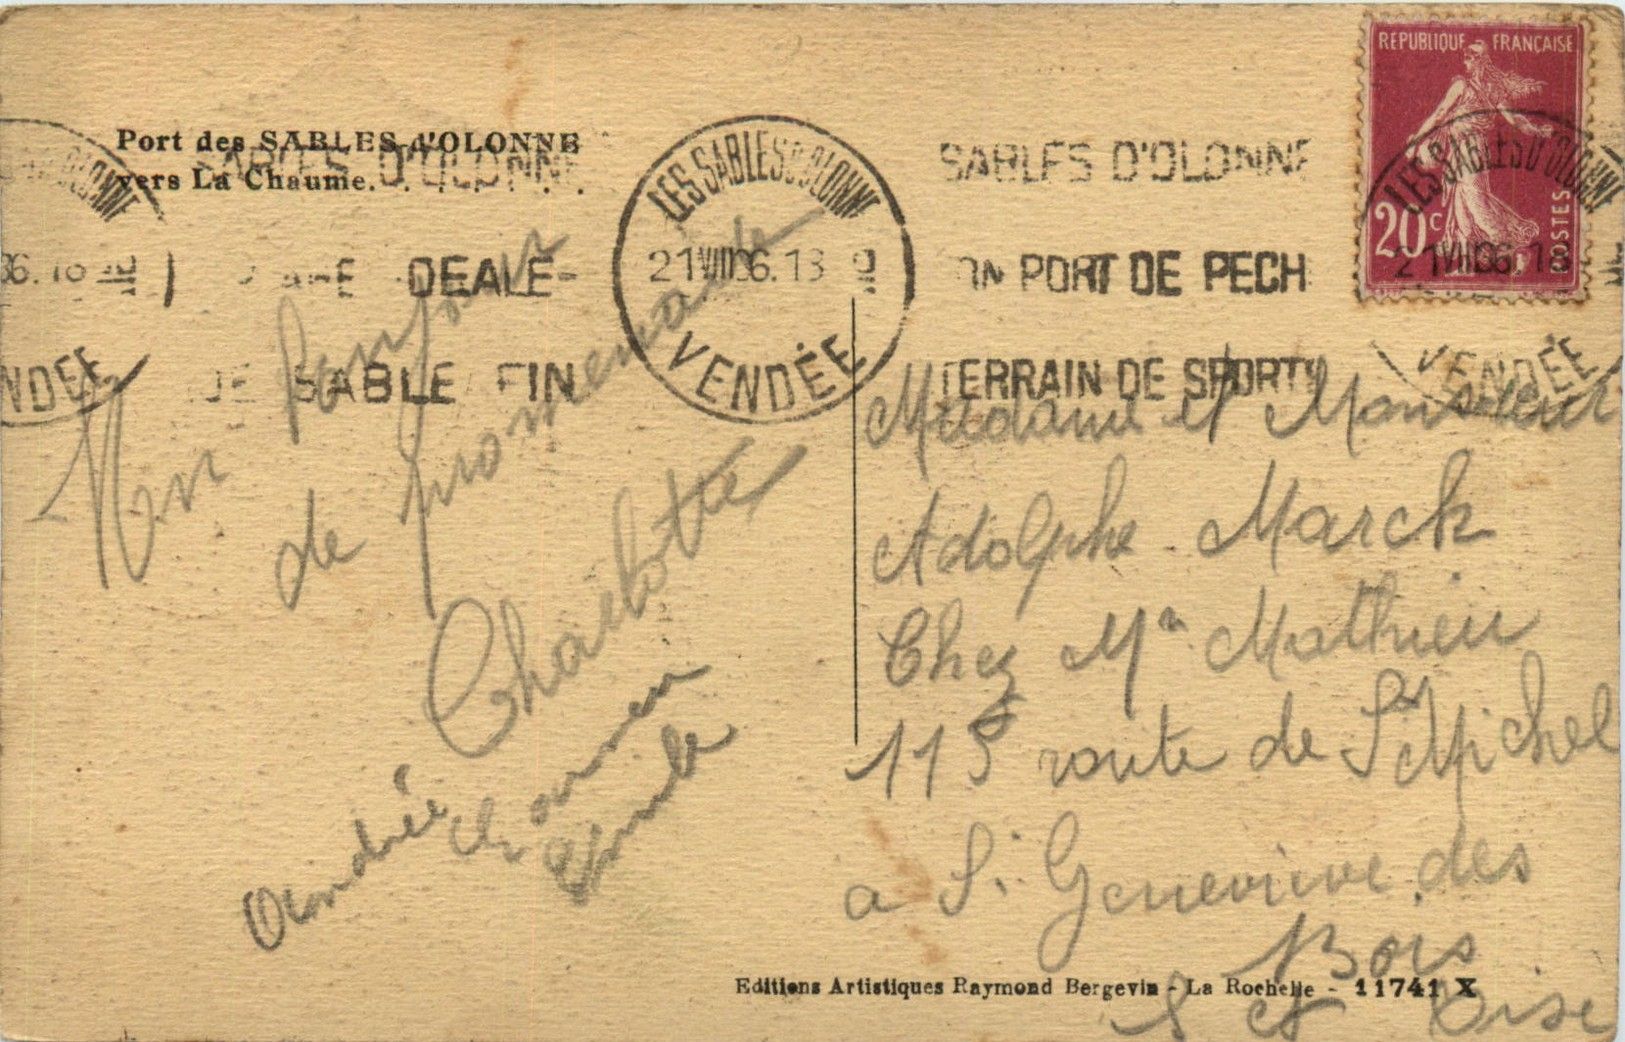 Port des SABLES-d'OLONNE
vers La Chaume.
SABLES D'OLONNE
DE SABLE FIN
LES SABLES D'OLONNE
21 VIII 36.18
VENDÉE
SABLES D'OLONNE
ON PORT DE PECH
TERRAIN DE SPORT
REPUBLIQUE FRANÇAISE
20c
POSTES
LES SABLES D'OLONNE
VENDÉE
Un bonjour
de promenade
Charlotte
Andrée
Madame et Monsieur
Adolphe Marck
Chez Mr Mathieu
115 route de St Michel
a St Genevieve des
Bois
S et Oise
Editions Artistiques Raymond Bergevin - La Rochelle - 11741 X